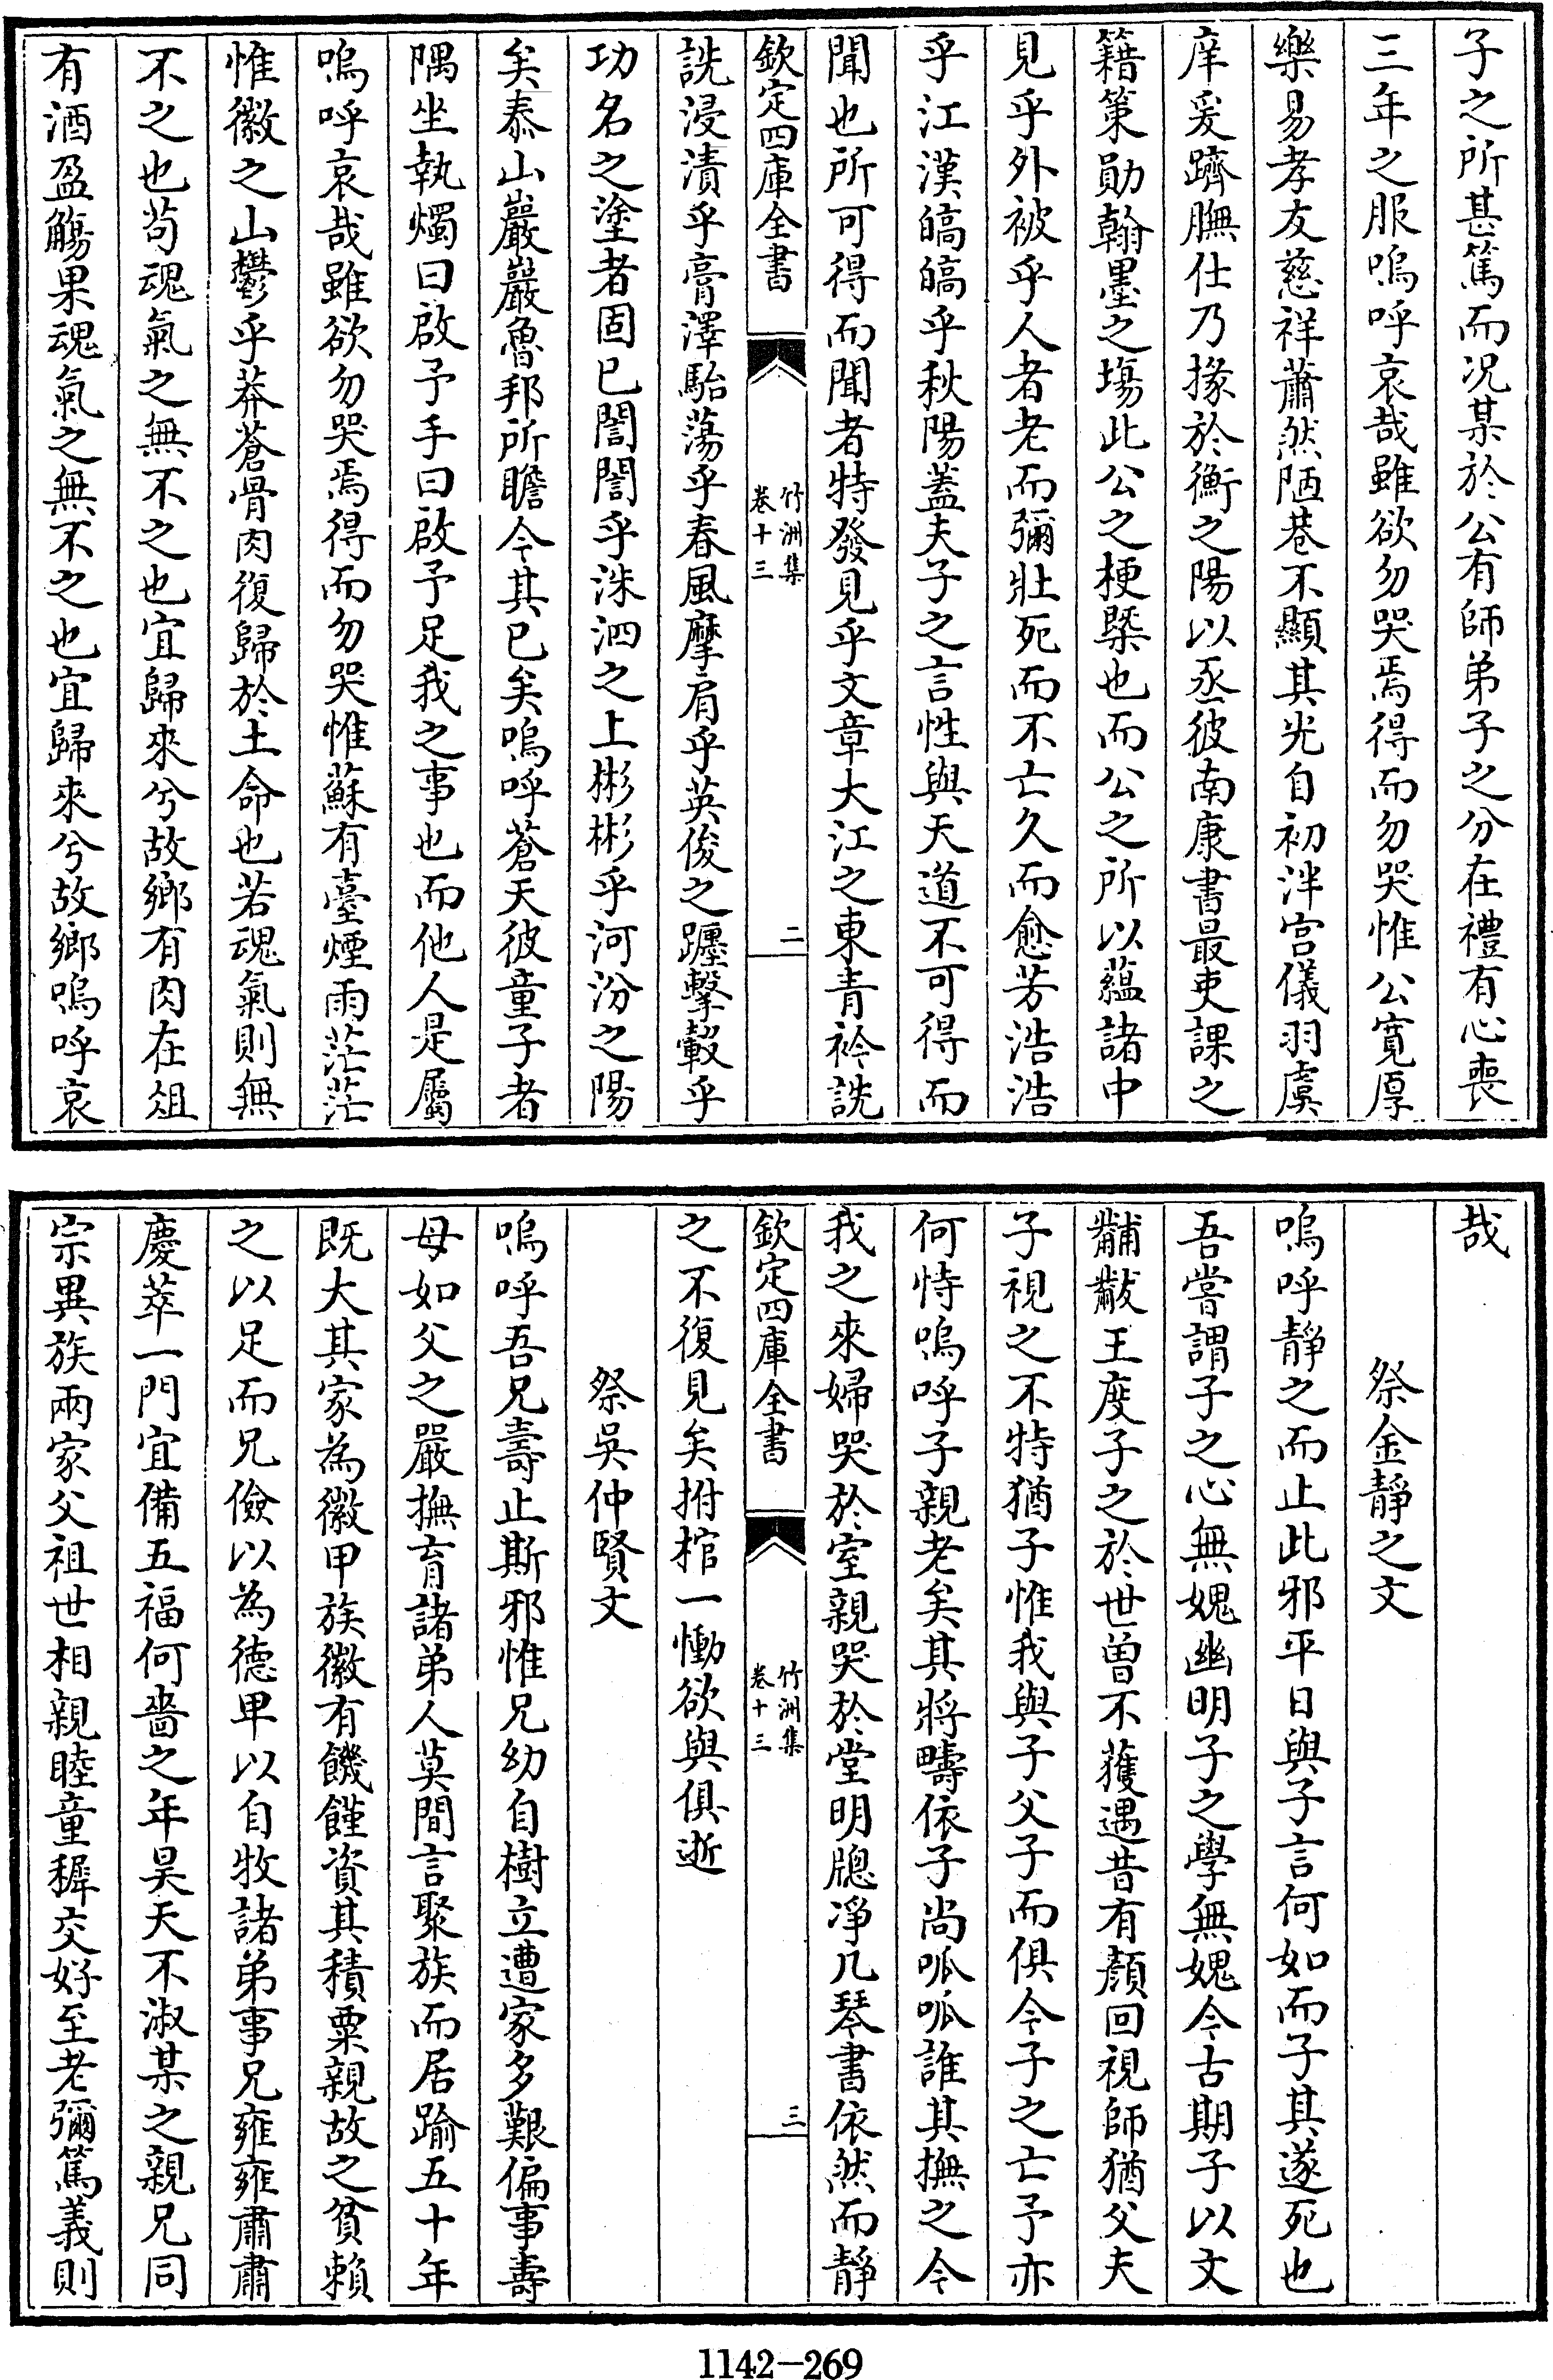 子之所甚篤而况某於公有師弟子之分在禮有心喪
三年之服嗚呼哀哉雖欲勿哭焉得而勿哭惟公寛厚
樂易孝友慈祥蕭然陋巷不顯其光自初泮宫儀羽虞
庠爰躋膴仕乃掾於衡之陽以丞彼南康書最吏課之
籍策勛翰墨之塲此公之梗槩也而公之所以藴諸中
見乎外被乎人者老而彌壯死而不亡久而愈芳浩浩
乎江漢皜皜乎秋陽蓋夫子之言性與天道不可得而
聞也所可得而聞者特發見乎文章大江之東青衿詵
欽定四庫全書
竹洲集
卷十三
二
詵浸漬乎膏澤駘蕩乎春風摩肩乎英俊之躔擊轂乎
功名之塗者固已誾誾乎洙泗之上彬彬乎河汾之陽
矣泰山巖巖魯邦所瞻今其已矣嗚呼蒼天彼童子者
隅坐執燭曰啟予手曰啟予足我之事也而他人是屬
嗚呼哀哉雖欲勿哭焉得而勿哭惟蘇有臺煙雨茫茫
惟徽之山鬱乎莽蒼骨肉復歸於土命也若魂氣則無
不之也苟魂氣之無不之也宜歸來兮故鄉有肉在俎
有酒盈觴果魂氣之無不之也宜歸來兮故鄉嗚呼哀
哉
祭金靜之文
嗚呼靜之而止此邪平日與子言何如而子其遂死也
吾嘗謂子之心無媿幽明子之學無媿今古期子以文
黼黻王度子之於世曽不獲遇昔有顔回視師猶父夫
子視之不特猶子惟我與子父子而俱今子之亡予亦
何恃嗚呼子親老矣其將疇依子尚呱呱誰其撫之今
我之來婦哭於室親哭於堂明牕凈几琴書依然而靜
欽定四庫全書
竹洲集
卷十三
三
之不復見矣拊棺一慟欲與俱逝
祭吳仲賢文
嗚呼吾兄壽止斯邪惟兄幼自樹立遭家多艱偏事壽
母如父之嚴撫育諸弟人莫間言聚族而居踰五十年
既大其家為徽甲族徽有饑饉資其積粟親故之貧賴
之以足而兄儉以為德卑以自牧諸弟事兄雍雍肅肅
慶萃一門宜備五福何嗇之年昊天不淑某之親兄同
宗異族兩家父祖世相親睦童穉交好至老彌篤義則
1142-269